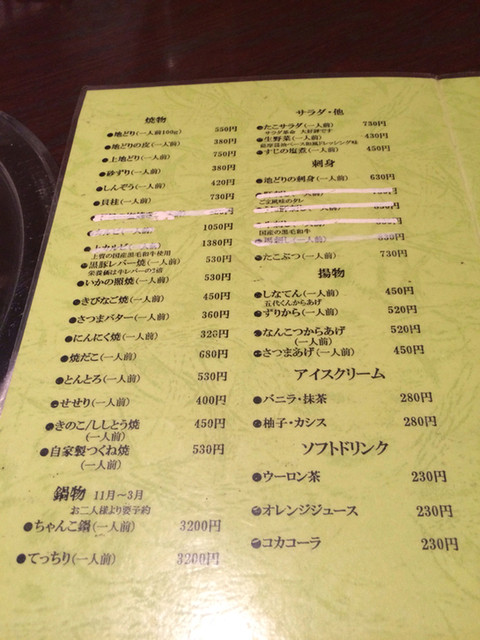 焼物
●地どり(一人前100g) 550円
●地どりの皮(一人前) 380円
●上地どり(一人前) 750円
●砂ずり(一人前) 380円
●しんぞう(一人前) 420円
●貝柱(一人前) 730円
1050円
1380円
上質の国産黒毛和牛使用
●黒豚レバー焼(一人前) 530円
栄養価は牛レバーの2倍
●いかの照焼(一人前) 530円
●きびなご焼(一人前) 450円
●さつまバター(一人前) 360円
●にんにく焼(一人前) 320円
●焼だこ(一人前) 680円
●とんとろ(一人前) 530円
●せせり(一人前) 400円
●きのこ/ししとう焼 450円
(一人前)
●自家製つくね焼 530円
(一人前)
鍋物 11月〜3月
お二人様より要予約
●ちゃんこ鍋(一人前) 3200円
●てっちり(一人前) 3200円
サラダ・他
●たこサラダ(一人前) 730円
サラダ革命 大好評です
●生野菜(一人前) 430円
薩摩醤油ベース和風ドレッシング味
●すじの塩煮(一人前) 450円
刺身
●地どりの刺身(一人前) 630円
ご宝風味のタレ
国産の黒毛和牛
●たこぶつ(一人前) 730円
揚物
●しなてん(一人前) 450円
五代くんからあげ
●ずりから(一人前) 520円
●なんこつからあげ 520円
(一人前)
●さつまあげ(一人前) 450円
アイスクリーム
●バニラ・抹茶 280円
●柚子・カシス 280円
ソフトドリンク
●ウーロン茶 230円
●オレンジジュース 230円
●コカコーラ 230円